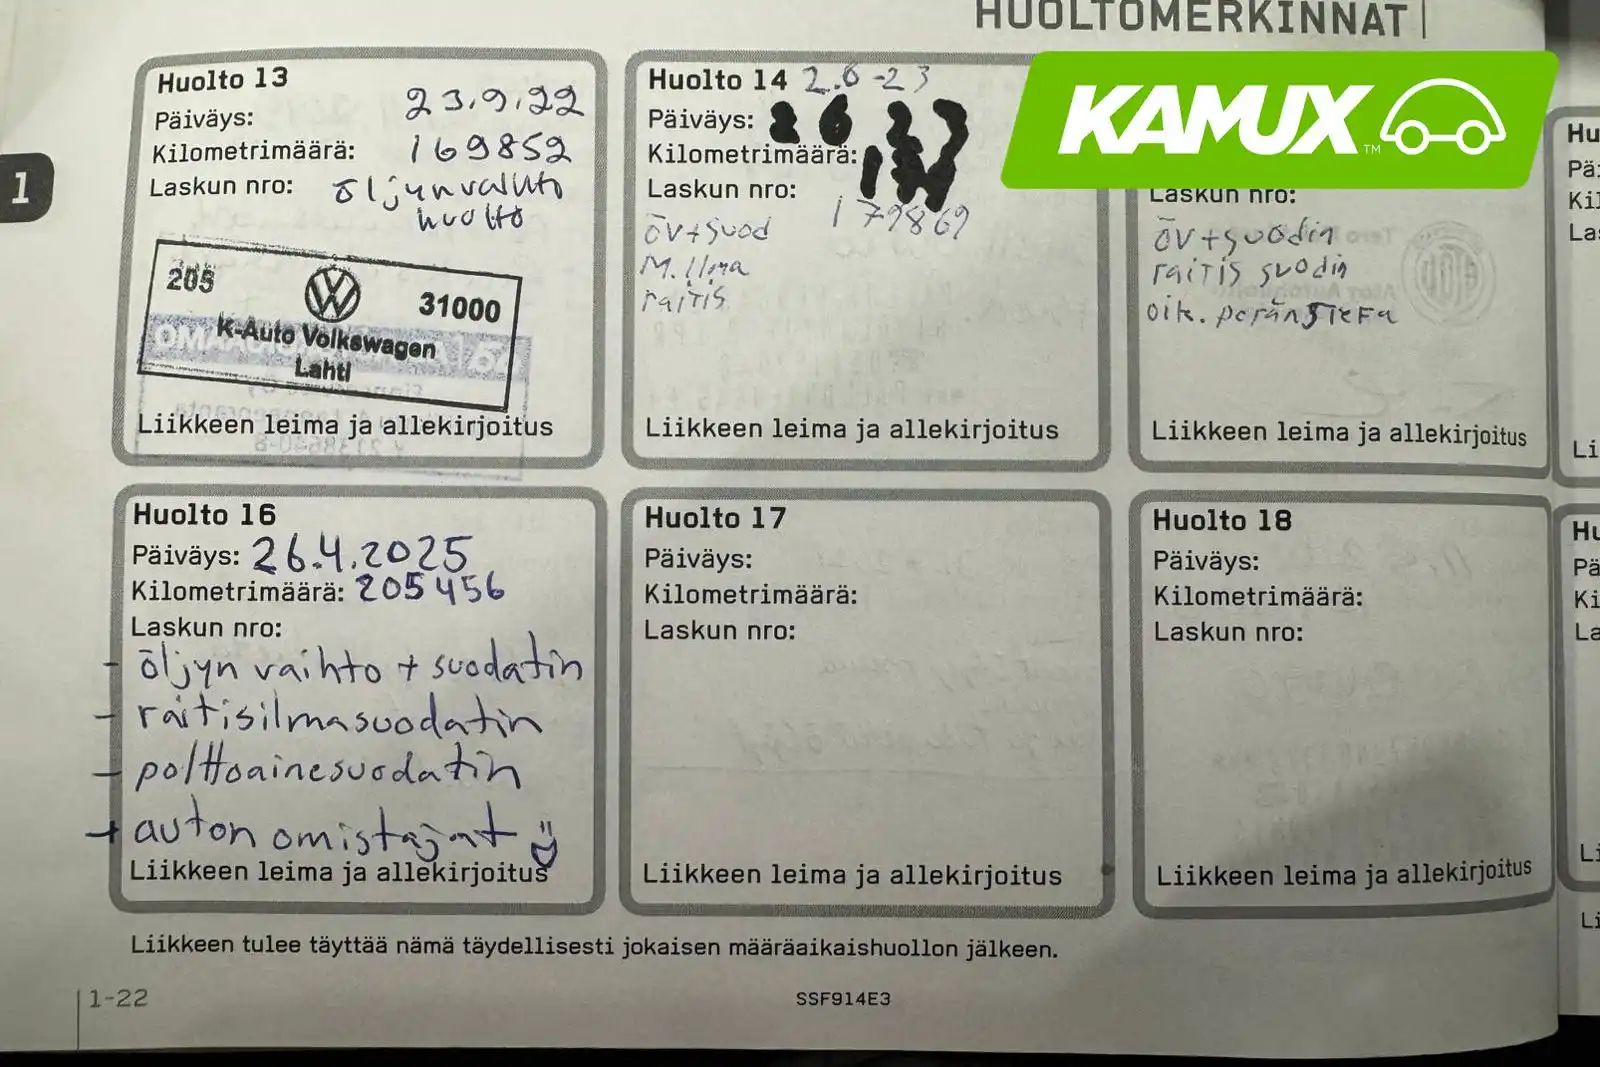 HUOLTOMERKINNAT
KAMUX™
1
Huolto 13
Päiväys: 23.9.22
Kilometrimäärä: 169852
Laskun nro: öljynvaihto
huolto
205 31000
K-Auto Volkswagen
Lahti
Liikkeen leima ja allekirjoitus
Huolto 14 2.6-23
Päiväys:
Kilometrimäärä:
Laskun nro: 179869
öv+suod
M.Ilma
raitis
Liikkeen leima ja allekirjoitus
Laskun nro:
öv+suodin
raitis suodin
oik.
Liikkeen leima ja allekirjoitus
Hu
Pä
Kil
Las
Li
Huolto 16
Päiväys: 26.4.2025
Kilometrimäärä: 205456
Laskun nro:
- öljyn vaihto + suodatin
- raitisilmasuodatin
- polttoainesuodatin
+ auton omistajat
Liikkeen leima ja allekirjoitus
Huolto 17
Päiväys:
Kilometrimäärä:
Laskun nro:
Liikkeen leima ja allekirjoitus
Huolto 18
Päiväys:
Kilometrimäärä:
Laskun nro:
Liikkeen leima ja allekirjoitus
Hu
Pä
Ki
La
Li
Liikkeen tulee täyttää nämä täydellisesti jokaisen määräaikaishuollon jälkeen.
Li
1-22
SSF914E3